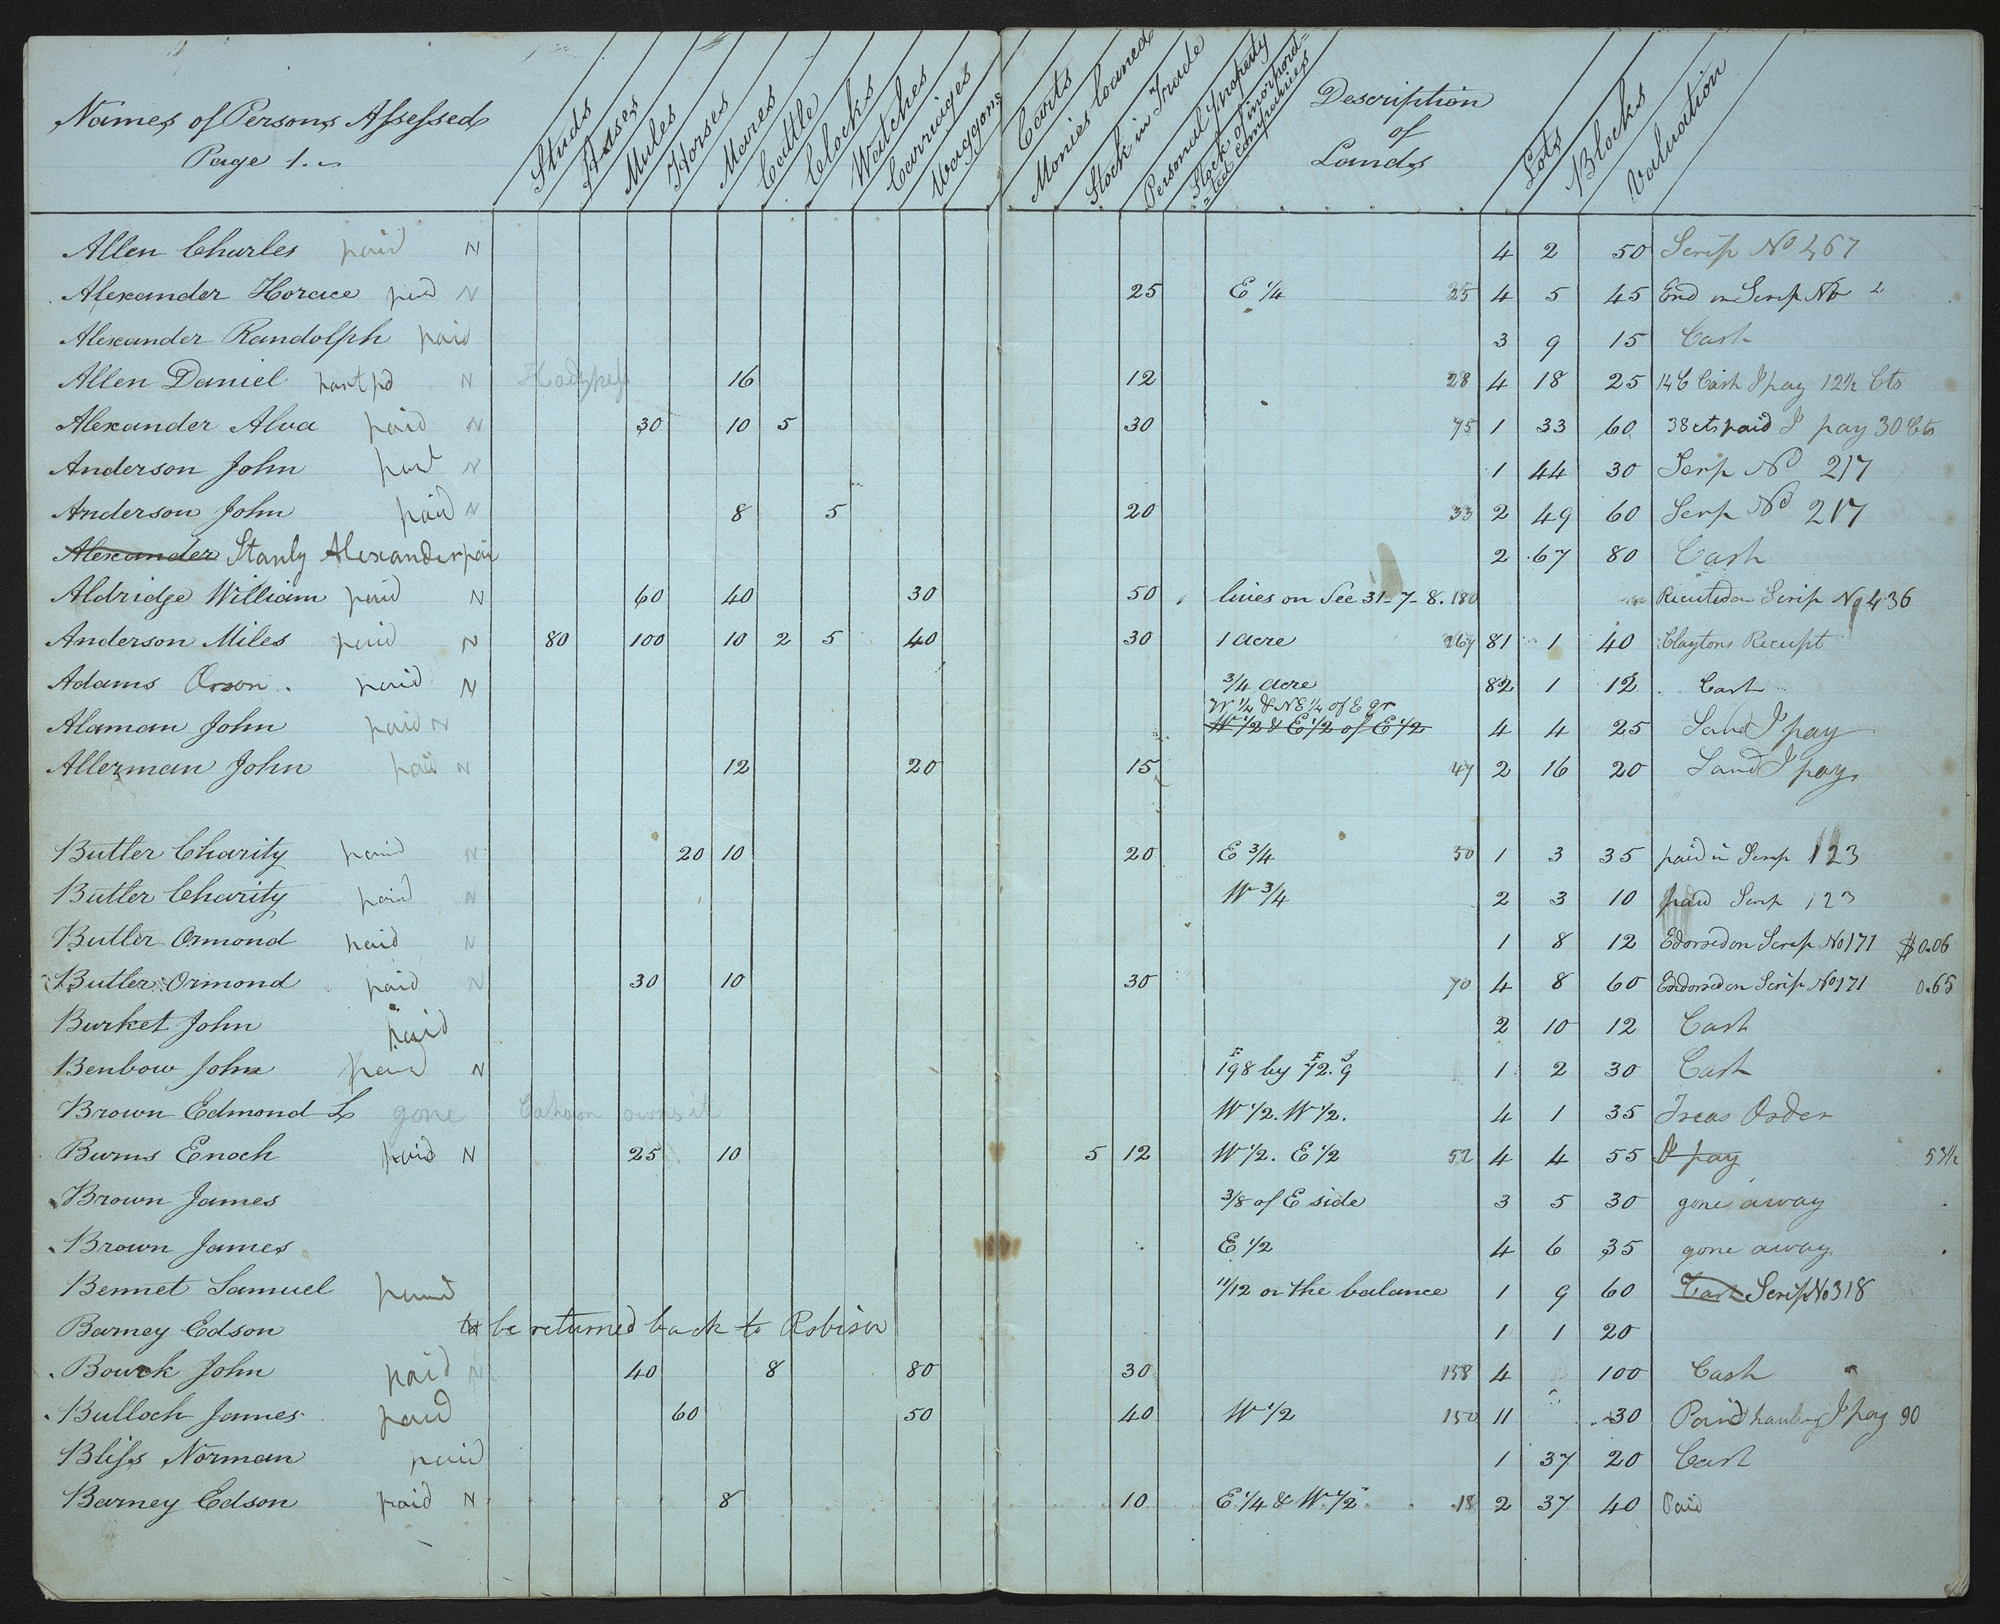 Names of Persons Assessed
Page 1.
Studs
Asses
Mules
Horses
Mares
Cattle
Clocks
Watches
Carriages
Waggons
Carts
Monies loaned
Stock in Trade
Personal property
Stock of incorpord=
=ted companies
Description
of
Lands
Lots
Blocks
Valuation
Allen Charles paid N 4 2 50 Scrip No 467
Alexander Horace paid N 25 E 1/4 25 4 5 45 End on Scrip No 2
Alexander Randolph paid 3 9 15 Cash
Allen Daniel part pd N 16 12 28 4 18 25 14 C Cash I pay 12 1/2 Cts
Alexander Alva paid N 30 10 5 30 75 1 33 60 38 cts paid I pay 30 Cts
Anderson John N 1 44 30 Scrp No 217
Anderson John paid N 8 5 20 33 2 49 60 Scrp No 217
Alexander Stanly Alexander paid 2 67 80 Cash
Aldridge William paid N 60 40 30 50 lives on Sec 31-7-8. 180 Scrip No 436
Anderson Miles paid N 80 100 10 2 5 40 30 1 acre 267 81 1 40 Claytons Receipt
Adams Orson. paid N 3/4 acre 82 1 12 Cash
W 1/4 & NE 1/4 of E qr
Alaman John paid N W 1/2 & E 1/2 of E 1/2 4 4 25 Land I pay
Allerman John paid N 12 20 15 47 2 16 20 Land I pay
Butler Charity paid N 20 10 20 E 3/4 50 1 3 35 paid in Scrip 123
Butler Charity paid N W 3/4 2 3 10 paid Scrip 123
Butler Ormond paid N 1 8 12 Edorsed on Scrip No 171 $0.06
Butler Ormond paid N 30 10 30 70 4 8 60 Endorsed on Scrip No 171 0.65
Burket John paid 2 10 12 Cash
Benbow John paid N 198 by 72. 9 1 2 30 Cash
Brown Edmond L gone Cahoon owns it W 1/2. W 1/2. 4 1 35 Treas Order
Burns Enoch paid N 25 10 5 12 W 1/2. E 1/2 52 4 4 55 I pay 53 1/2
Brown James 3/8 of E side 3 5 30 gone away
Brown James E 1/2 4 6 35 gone away
Bennet Samuel paid 11/12 or the balance 1 9 60 Cash Scrip No 318
Barney Edson to be returned back to Robison 1 1 20
Bouck John paid N 40 8 80 30 158 4 100 Cash
Bulloch James paid 60 50 40 W 1/2 150 11 30 Paid hauling I pay 90
Bliss Norman paid 1 37 20 Cash
Barney Edson paid N 8 10 E 1/4 & W 1/2 18 2 37 40 Paid